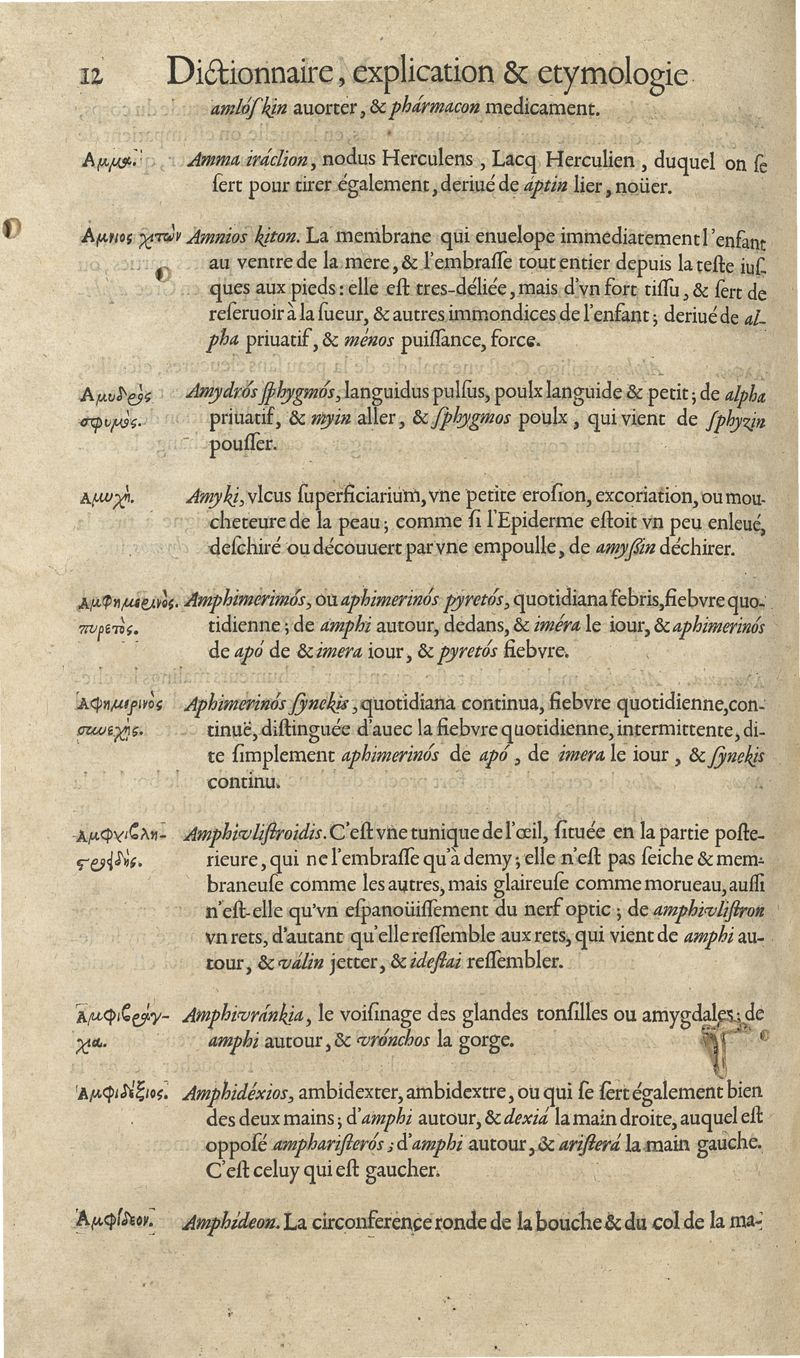 12 Dictionnaire, explication & etymologie
amlóſkin auorter, & phármacon medicament.
Αμμα. Amma iráclion, nodus Herculens, Lacq Herculien, duquel on ſe
ſert pour tirer également, deriué de áptin lier, noüer.
Αμνιος χιτών Amnios kiton. La membrane qui enuelope immediatement l'enfant
au ventre de la mere, & l'embraſſe tout entier depuis la teſte iuſ-
ques aux pieds: elle eſt tres-déliée, mais d'vn fort tiſſu, & ſert de
reſeruoir à la ſueur, & autres immondices de l'enfant; deriué de al-
pha priuatif, & ménos puiſſance, force.
Αμυδρὸς Amydrós ſphygmós, languidus pulſus, poulx languide & petit; de alpha
σφυμὸς. priuatif, & myin aller, & ſphygmos poulx, qui vient de ſphyzin
pouſſer.
Αμυχή. Amyki, vlcus ſuperficiarium, vne petite eroſion, excoriation, ou mou-
cheteure de la peau; comme ſi l'Epiderme eſtoit vn peu enleué,
deſchiré ou découuert par vne empoulle, de amyſſin déchirer.
Αμφημερινὸς. Amphimerimós, ou aphimerinós pyretós, quotidiana febris, fiebvre quo-
πυρετὸς. tidienne; de amphi autour, dedans, & iméra le iour, & aphimerinós
de apó de & imera iour, & pyretós fiebvre.
Αφημερινὸς Aphimerinós ſynekis, quotidiana continua, fiebvre quotidienne, con-
συνεχὴς. tinuë, diſtinguée d'auec la fiebvre quotidienne, intermittente, di-
te ſimplement aphimerinós de apó, de imera le iour, & ſynekis
continu.
Αμφιϐλη- Amphivliſtroidis. C'eſt vne tunique de l'œil, ſituée en la partie poſte-
ςροιδὴς. rieure, qui ne l'embraſſe qu'à demy; elle n'eſt pas ſeiche & mem-
braneuſe comme les autres, mais glaireuſe comme morueau, auſſi
n'eſt-elle qu'vn eſpanoüiſſement du nerf optic; de amphivliſtron
vn rets, d'autant qu'elle reſſemble aux rets, qui vient de amphi au-
tour, & válin jetter, & ideſtai reſſembler.
Αμφιϐράγ- Amphivránkia, le voiſinage des glandes tonſilles ou amygdales; de
χια. amphi autour, & vrónchos la gorge.
Αμφιδέξιος. Amphidéxios, ambidexter, ambidextre, ou qui ſe ſert également bien
des deux mains; d'amphi autour, & dexiá la main droite, auquel eſt
oppoſé amphariſterós; d'amphi autour, & ariſterá la main gauche.
C'eſt celuy qui eſt gaucher.
Αμφίδεον. Amphídeon. La circonference ronde de la bouche & du col de la ma-